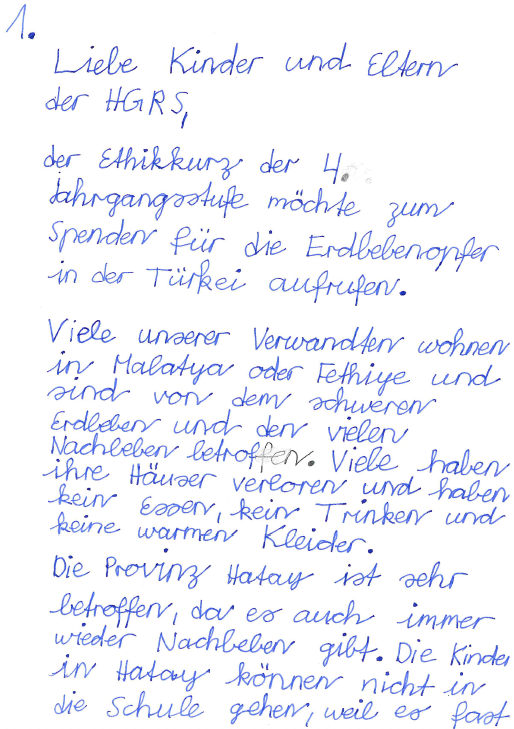 1.
Liebe Kinder und Eltern
der HGRS,
der Ethikkurz der 4.
Jahrgangsstufe möchte zum
Spenden für die Erdbebenopfer
in der Türkei aufrufen.
Viele unserer Verwandten wohnen
in Malatya oder Fethiye und
sind von dem schweren
Erdbeben und den vielen
Nachbeben betroffen. Viele haben
ihre Häuser verloren und haben
kein Essen, kein Trinken und
keine warmen Kleider.
Die Provinz Hatay ist sehr
betroffen, da es auch immer
wieder Nachbeben gibt. Die Kinder
in Hatay können nicht in
die Schule gehen, weil es fast